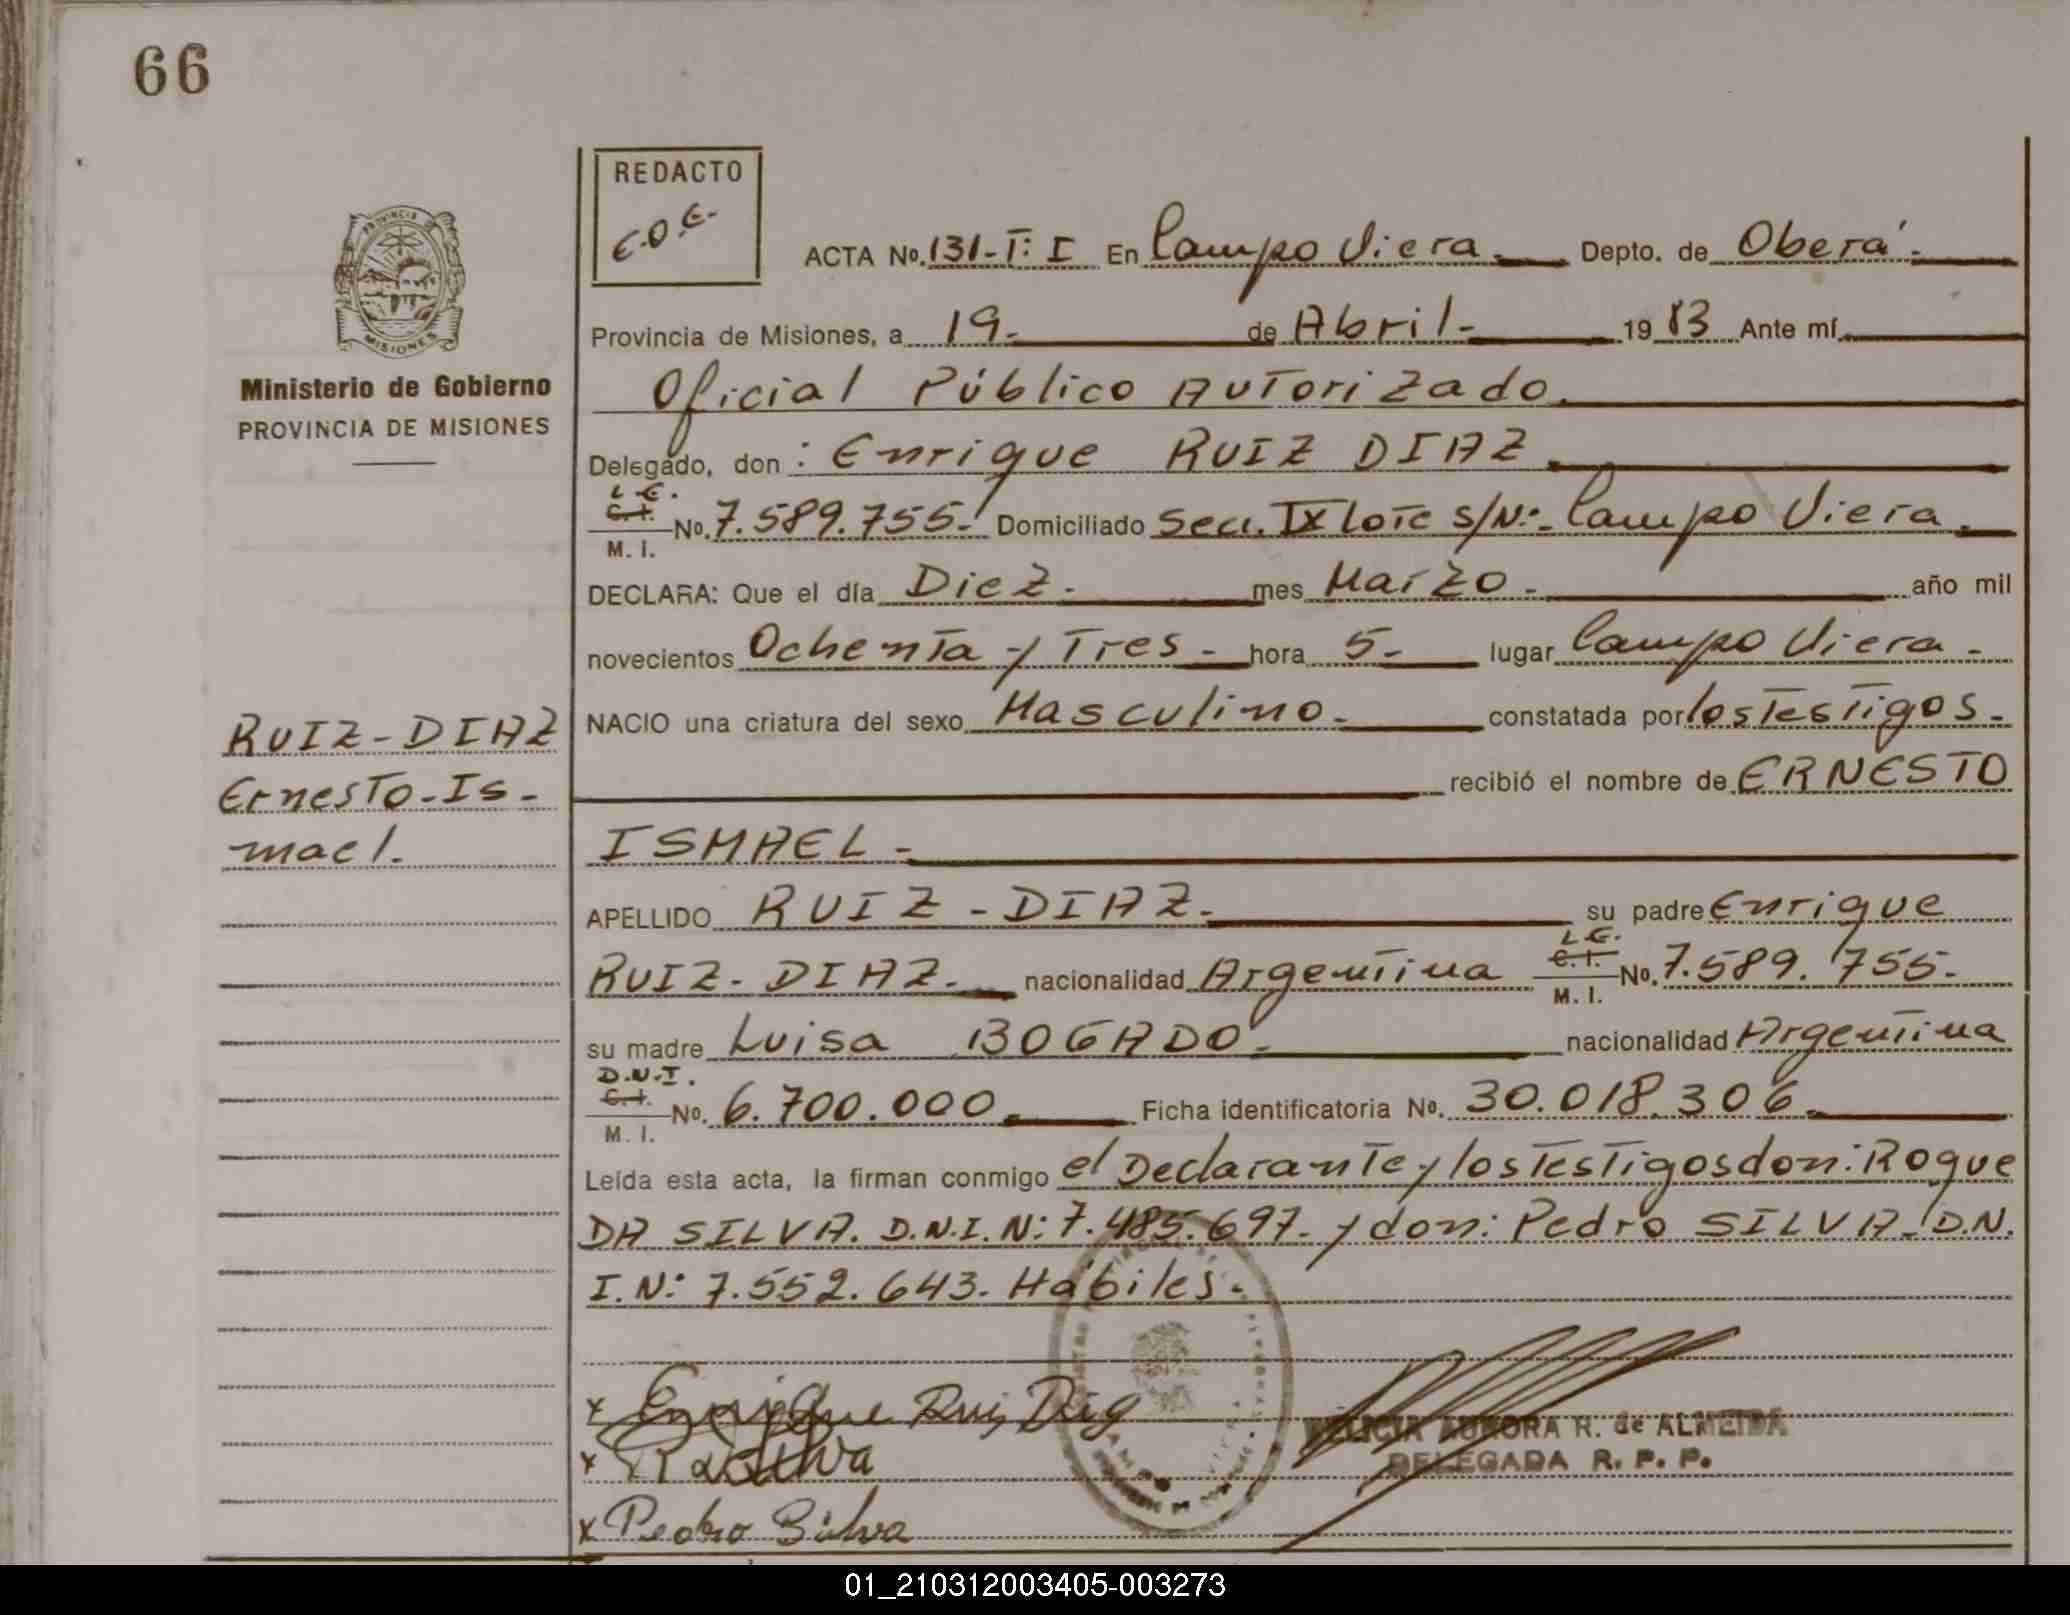 66
REDACTO
E.O.E.
ACTA No. 131-T: I En Campo Viera. Depto. de Oberá.
PROVINCIA
MISIONES
Provincia de Misiones, a 19. de Abril- 19 83 Ante mí
Ministerio de Gobierno
PROVINCIA DE MISIONES
Oficial Público Autorizado.
Delegado, don : Enrique RUIZ DIAZ
L.E.
C.I. No. 7.589.755.- Domiciliado Secc. IX lote S/N:- Campo Viera.
M. I.
DECLARA: Que el día Diez. mes Marzo. año mil
novecientos Ochenta y Tres - hora 5- lugar Campo Viera -
NACIO una criatura del sexo Masculino. constatada por los Testigos.
recibió el nombre de ERNESTO
ISMAEL -
RUIZ-DIAZ
Ernesto-Is-
mael.
APELLIDO RUIZ - DIAZ. su padre Enrique
L.E.
RUIZ-DIAZ. nacionalidad Argentina C.I. No. 7.589.755.
M. I.
su madre Luisa BOGADO. nacionalidad Argentina
D.N.I.
C.I. No. 6.700.000. Ficha identificatoria No. 30.018.306.
M. I.
Leída esta acta, la firman conmigo el Declarante y los Testigos don: Roque
DA SILVA. D.N.I.N: 7.485.697. y don: Pedro SILVA. D.N.
I.N: 7.552.643. Hábiles.
x Enrique Ruiz Diaz
x
x Pedro Silva
FELICIA AURORA R. de ALMEIDA
DELEGADA R. P. P.
01_210312003405-003273